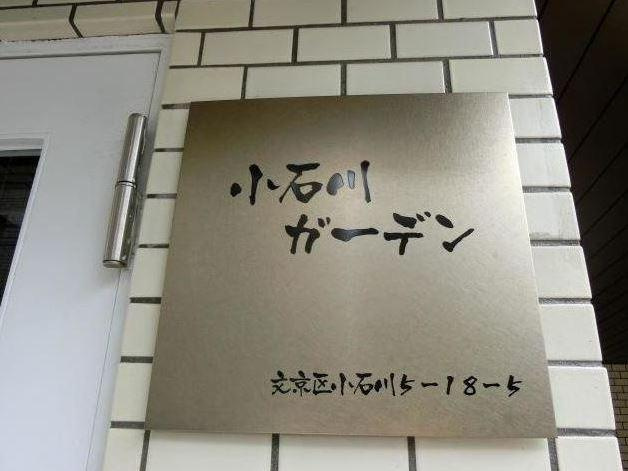 小石川
ガーデン
文京区小石川5-18-5